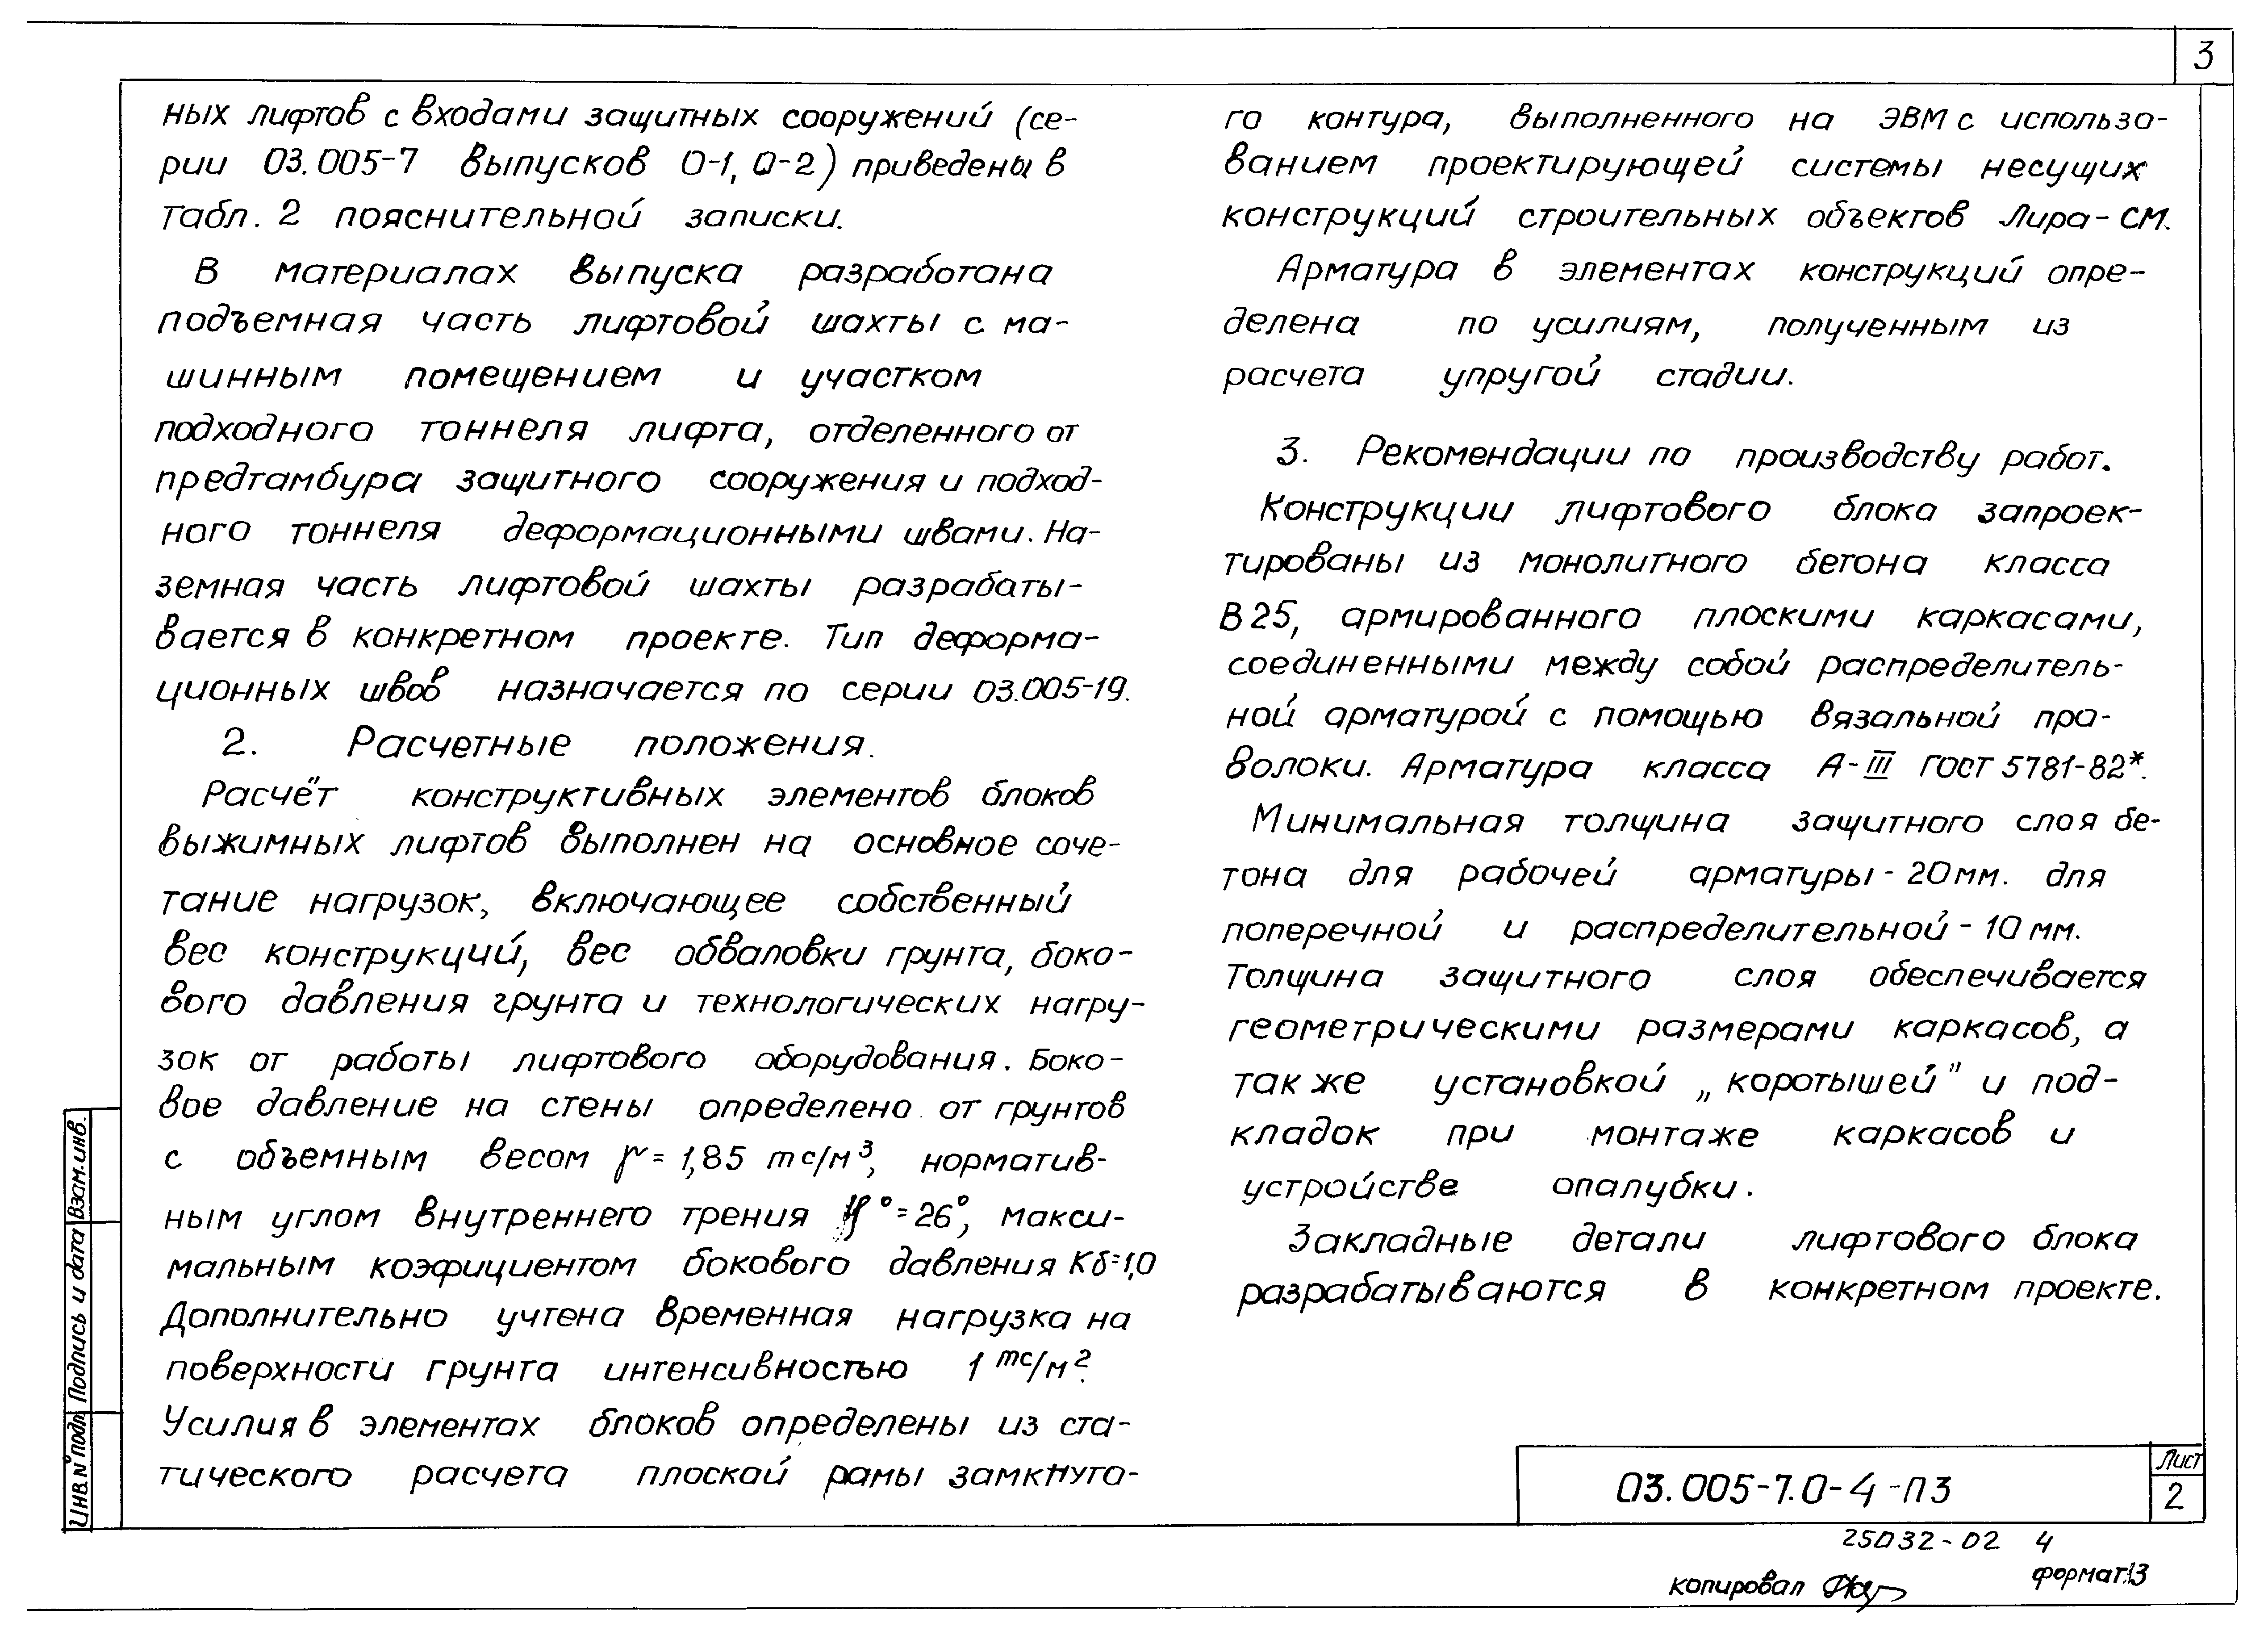 3
ных лифтов с входами защитных сооружений (се-
рии 03.005-7 выпусков 0-1, 0-2) приведены в
табл. 2 пояснительной записки.
В материалах выпуска разработана
подъемная часть лифтовой шахты с ма-
шинным помещением и участком
подходного тоннеля лифта, отделенного от
предтамбура защитного сооружения и подход-
ного тоннеля деформационными швами. На-
земная часть лифтовой шахты разрабаты-
вается в конкретном проекте. Тип деформа-
ционных швов назначается по серии 03.005-19.
2. Расчетные положения.
Расчёт конструктивных элементов блоков
выжимных лифтов выполнен на основное соче-
тание нагрузок, включающее собственный
вес конструкций, вес обваловки грунта, боко-
вого давления грунта и технологических нагру-
зок от работы лифтового оборудования. Боко-
вое давление на стены определено от грунтов
с объемным весом γ = 1,85 тс/м³, норматив-
ным углом внутреннего трения φ° = 26°, макси-
мальным коэфициентом бокового давления Кб=1,0
Дополнительно учтена временная нагрузка на
поверхности грунта интенсивностью 1 тс/м².
Усилия в элементах блоков определены из ста-
тического расчета плоской рамы замкнуто-
го контура, выполненного на ЭВМ с использо-
ванием проектирующей системы несущих
конструкций строительных объектов Лира-СМ.
Арматура в элементах конструкций опре-
делена по усилиям, полученным из
расчета упругой стадии.
3. Рекомендации по производству работ.
Конструкции лифтового блока запроек-
тированы из монолитного бетона класса
В25, армированного плоскими каркасами,
соединенными между собой распределитель-
ной арматурой с помощью вязальной про-
волоки. Арматура класса А-III ГОСТ 5781-82*.
Минимальная толщина защитного слоя бе-
тона для рабочей арматуры - 20мм. для
поперечной и распределительной - 10 мм.
Толщина защитного слоя обеспечивается
геометрическими размерами каркасов, а
также установкой „коротышей" и под-
кладок при монтаже каркасов и
устройстве опалубки.
Закладные детали лифтового блока
разрабатываются в конкретном проекте.
Взам.инв.
Подпись и дата
Инв.№ подл.
03.005-7.0-4-ПЗ
Лист
2
25032-02 4
копировал
формат13